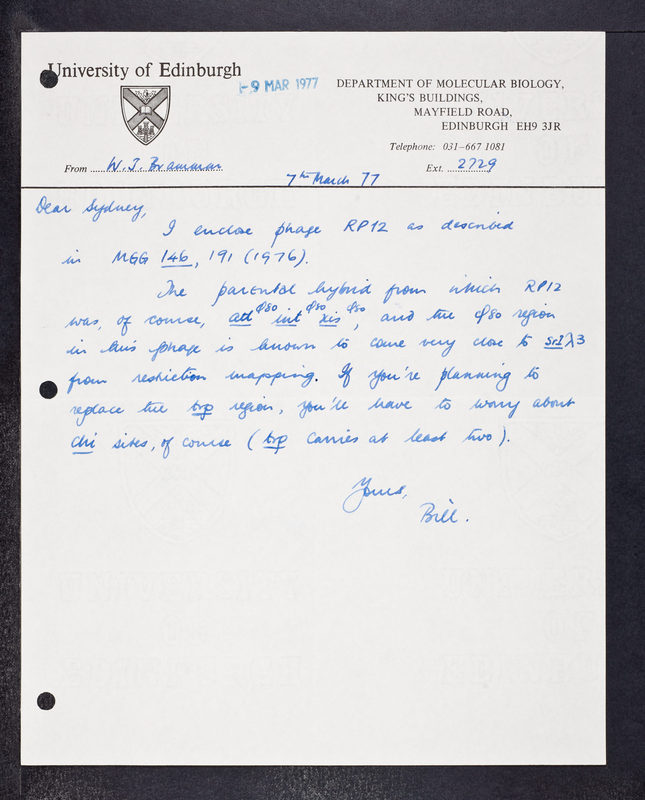 University of Edinburgh
-9 MAR 1977
DEPARTMENT OF MOLECULAR BIOLOGY,
KING'S BUILDINGS,
MAYFIELD ROAD,
EDINBURGH EH9 3JR
Telephone: 031-667 1081
From W. J. Brammar
Ext. 2729
7th March 77
Dear Sydney,
I enclose phage RP12 as described
in MGG 146, 191 (1976).
The parental hybrid from which RP12
was, of course, att^φ80 int^φ80 xis^φ80, and the φ80 region
in this phage is known to come very close to srI λ3
from restriction mapping. If you're planning to
replace the trp region, you'll have to worry about
chi sites, of course (trp carries at least two).
Yours,
Bill.